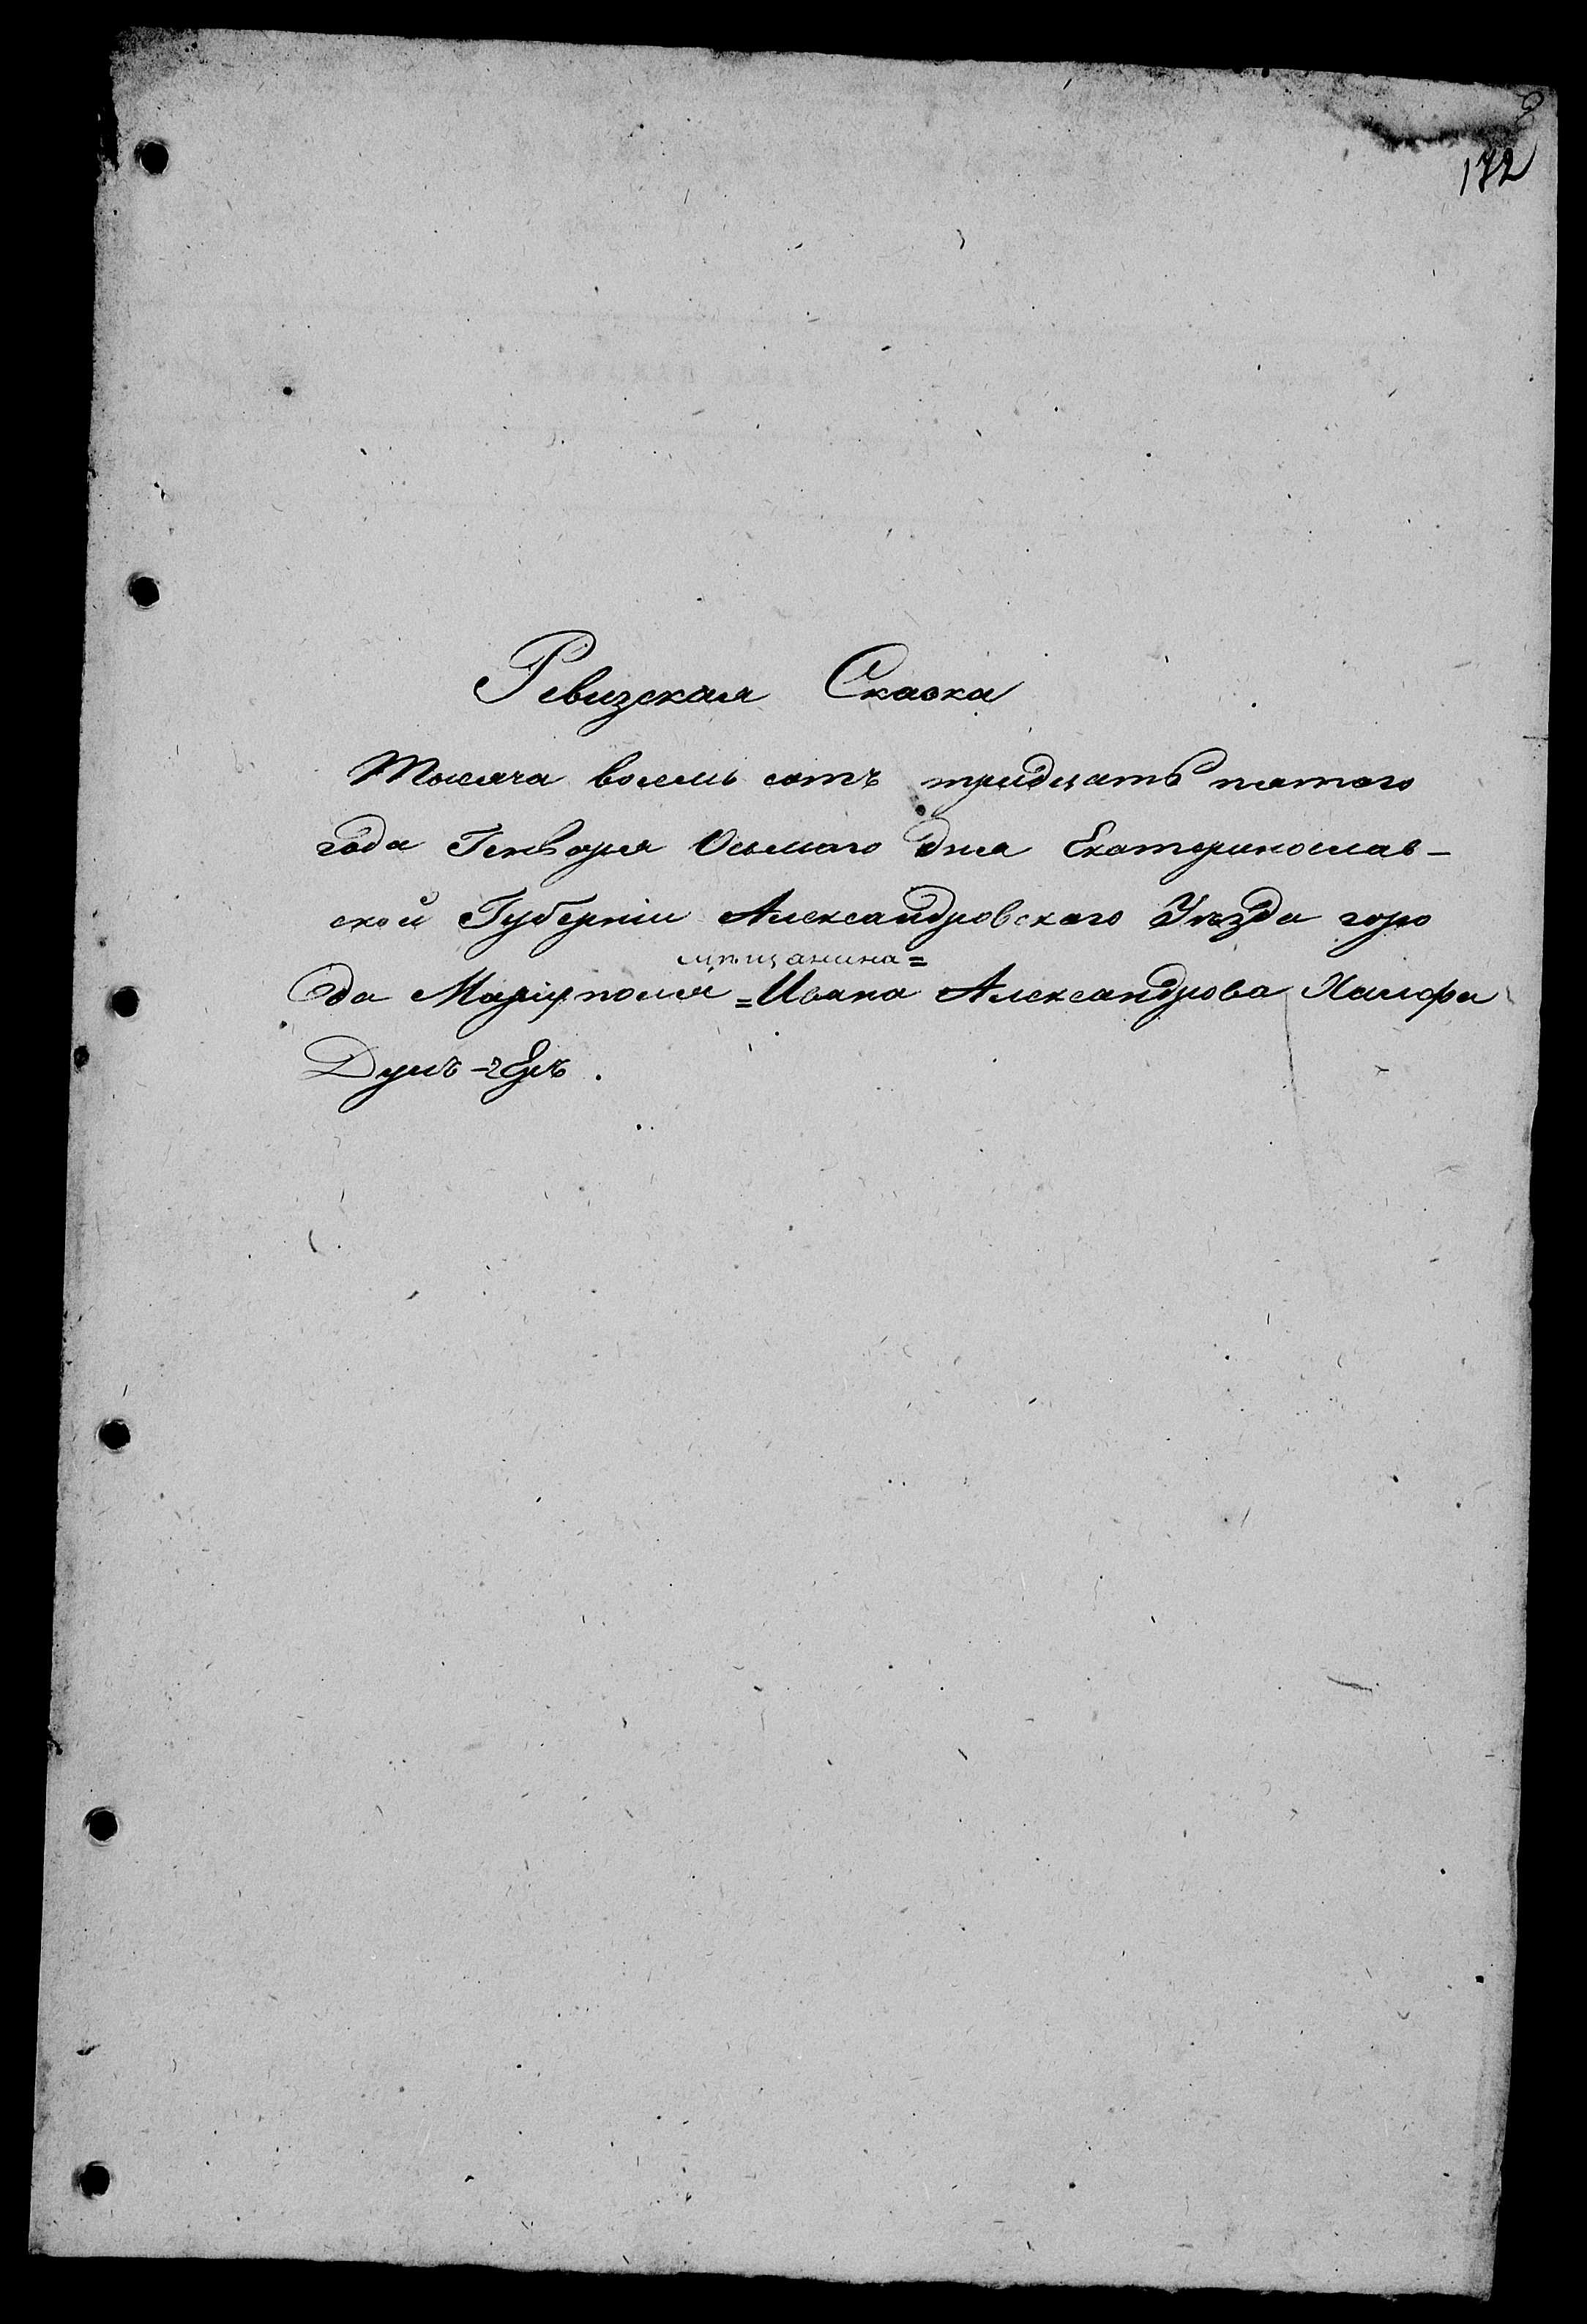 172
Ревизская Сказка
Тысяча восемь сотъ тридцать пятого
года Генваря Осьмаго дня Екатеринослав-
ской Губерніи Александровскаго Уѣзда горо
мѣщанина=
да Маріуполя =Ивана Александрова